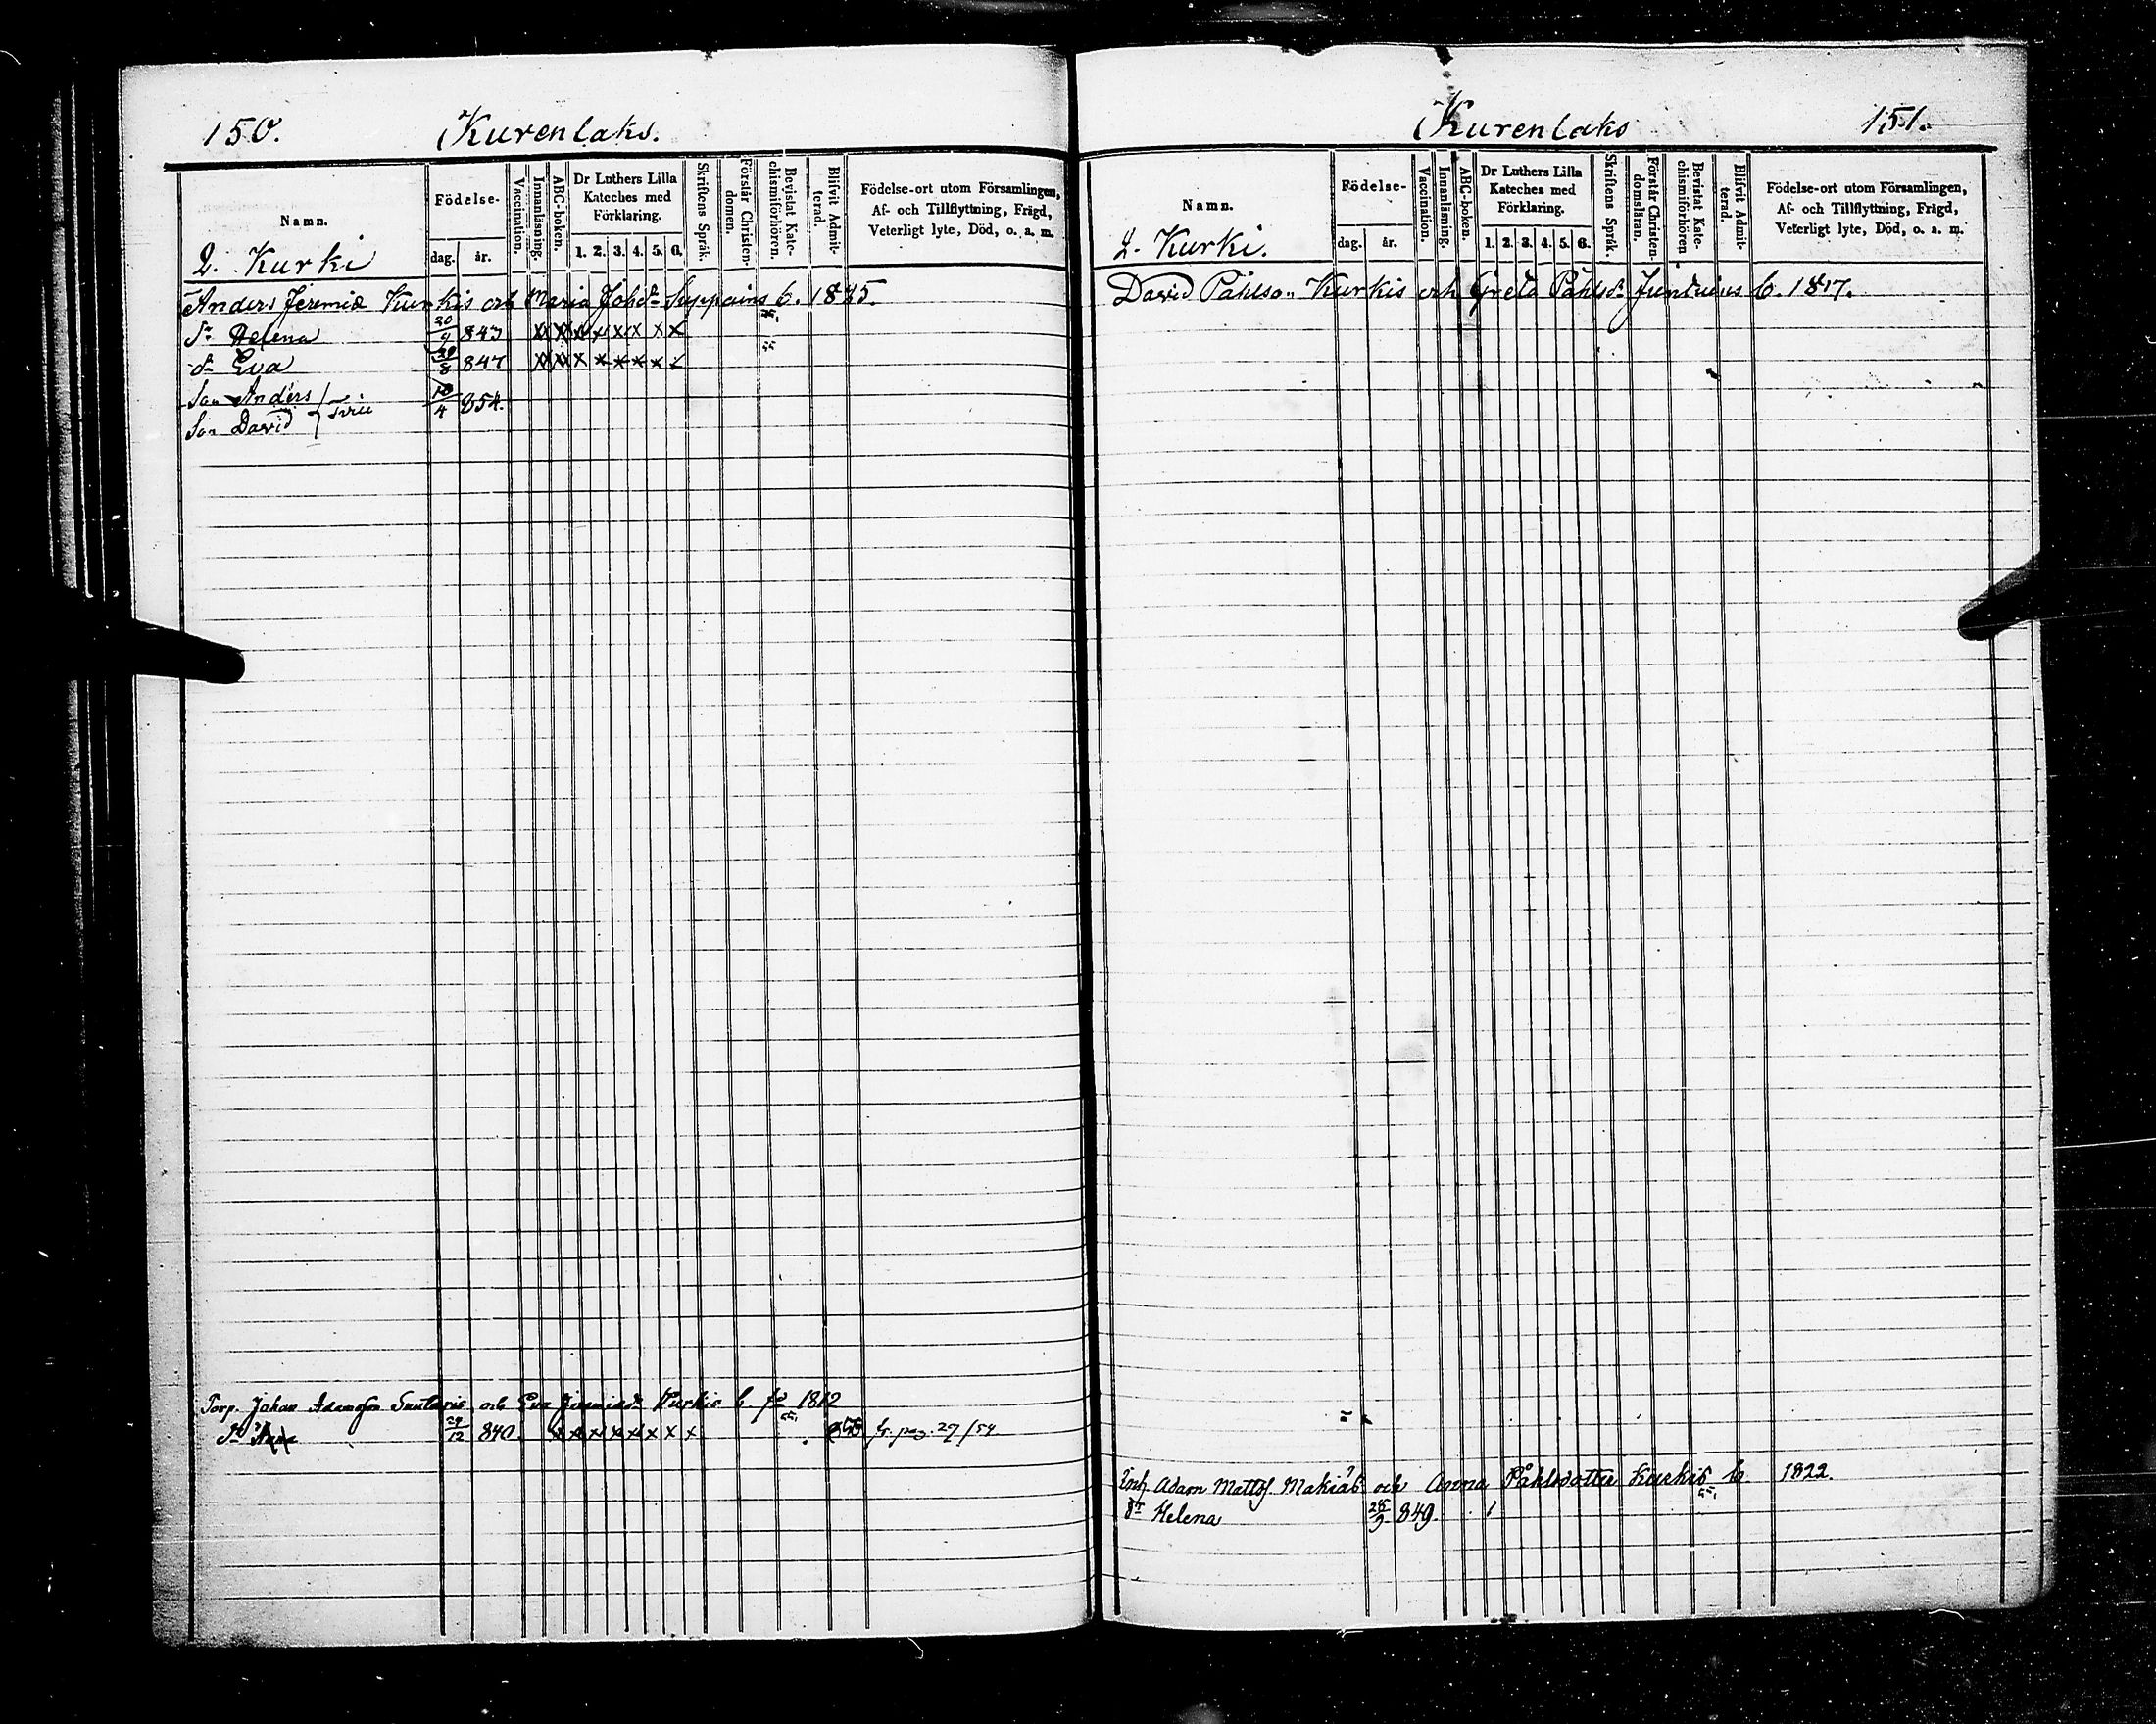 150. Kurenlaks.
Namn. Födelse- Vaccination. Innanläsning. ABC-boken. Dr Luthers Lilla Kateches med Förklaring. Skriftens Språk. Förstår Christendomen. Bevistat Katechismiförhören. Blifvit Admitterad. Födelse-ort utom Församlingen, Af- och Tillflyttning, Frägd, Veterligt lyte, Död, o. a. m.
dag. år. 1. 2. 3. 4. 5. 6.
2. Kurki
Anders Jeremiæ Kurkis och Maria Johsdr b. 1835.
dr Helena 843 x x x x x x x x
dr Eva 29/8 847 x x x x x x x x
Son Anders
10/4 854.
Son David
Torp. Johan Adamson och Eva Jeremiædr Kurkis b. 1812
dr Anna 29/12 840. x x x x x x x x fr. pag. 27/54
Kurenlaks 151.
Namn. Födelse- Vaccination. Innanläsning. ABC-boken. Dr Luthers Lilla Kateches med Förklaring. Skriftens Språk. Förstår Christendomsläran. Bevistat Katechismiförhören Blifvit Admitterad. Födelse-ort utom Församlingen, Af- och Tillflyttning, Frägd, Veterligt lyte, Död, o. a. m.
dag. år. 1. 2. 3. 4. 5. 6.
2. Kurki.
David Påhlson Kurkis och Greta Påhlsdr b. 1817.
Inh. Adam Matts. och Anna Påhlsdotter Kurkis b. 1822.
dr Helena 849.